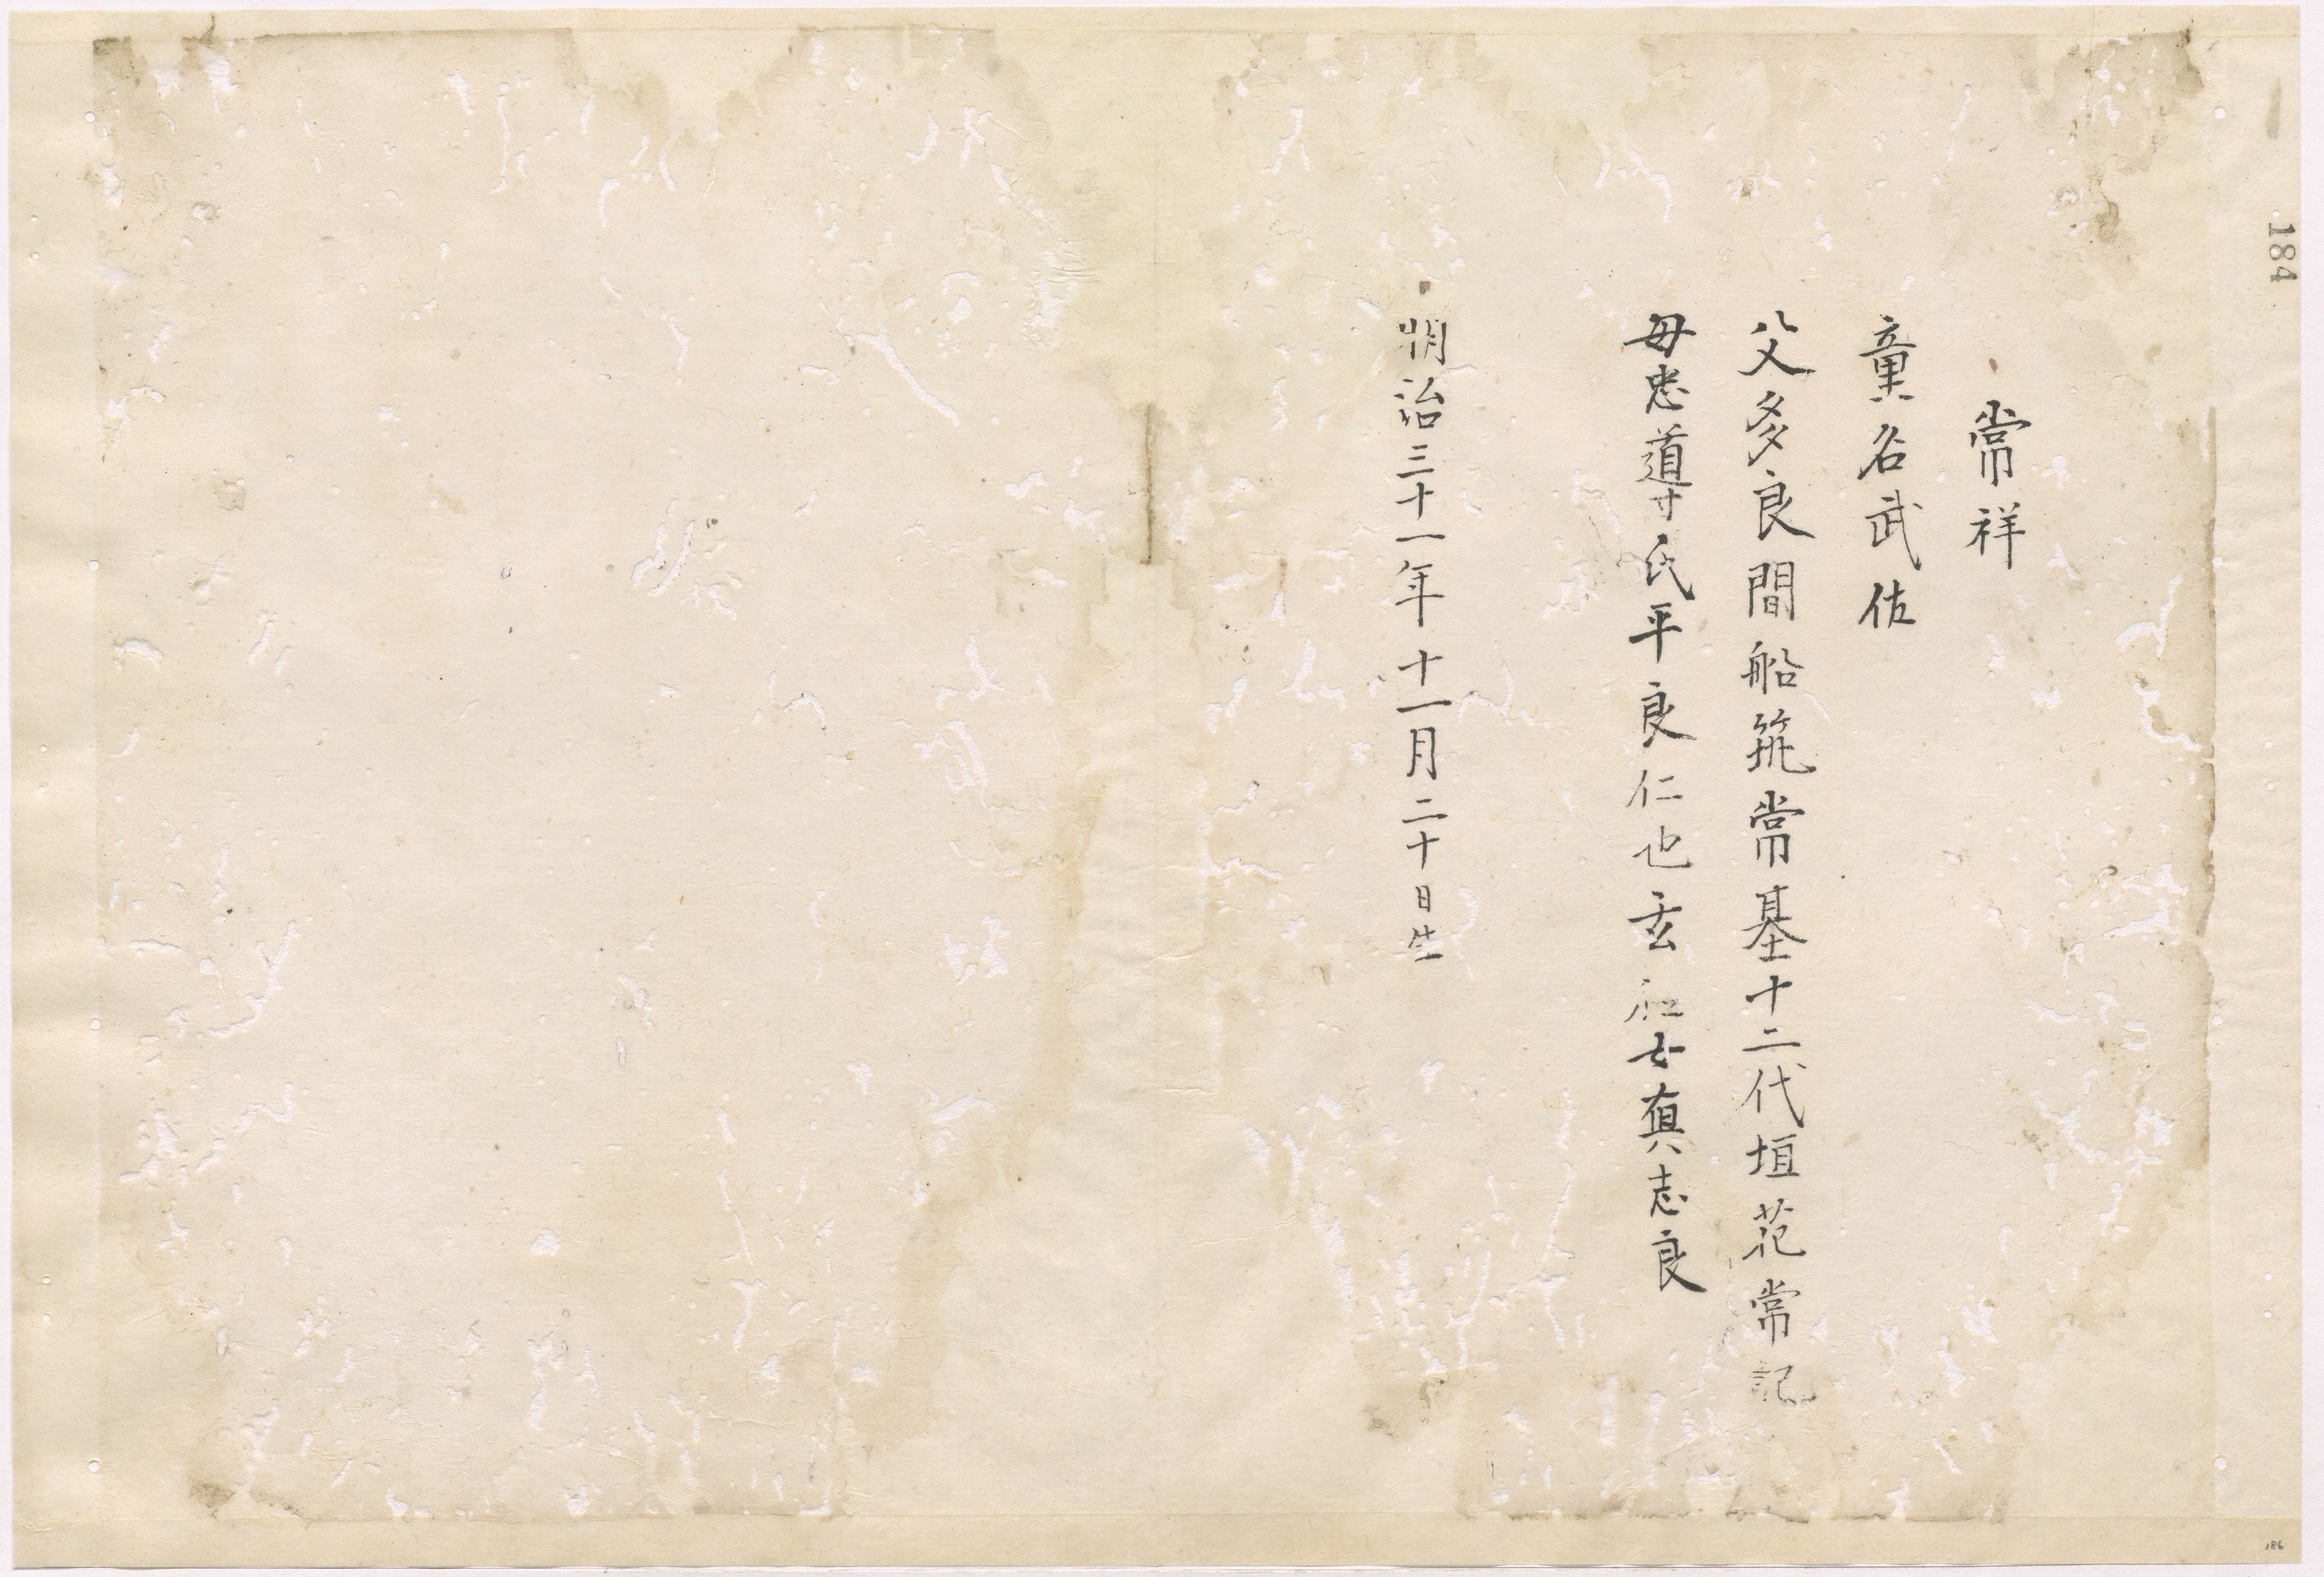 常祥
童名武佐
父多良間船筑常基十二代垣花常記
母忠導氏平良仁也玄 女真志良
明治三十一年十一月二十日生
184
186